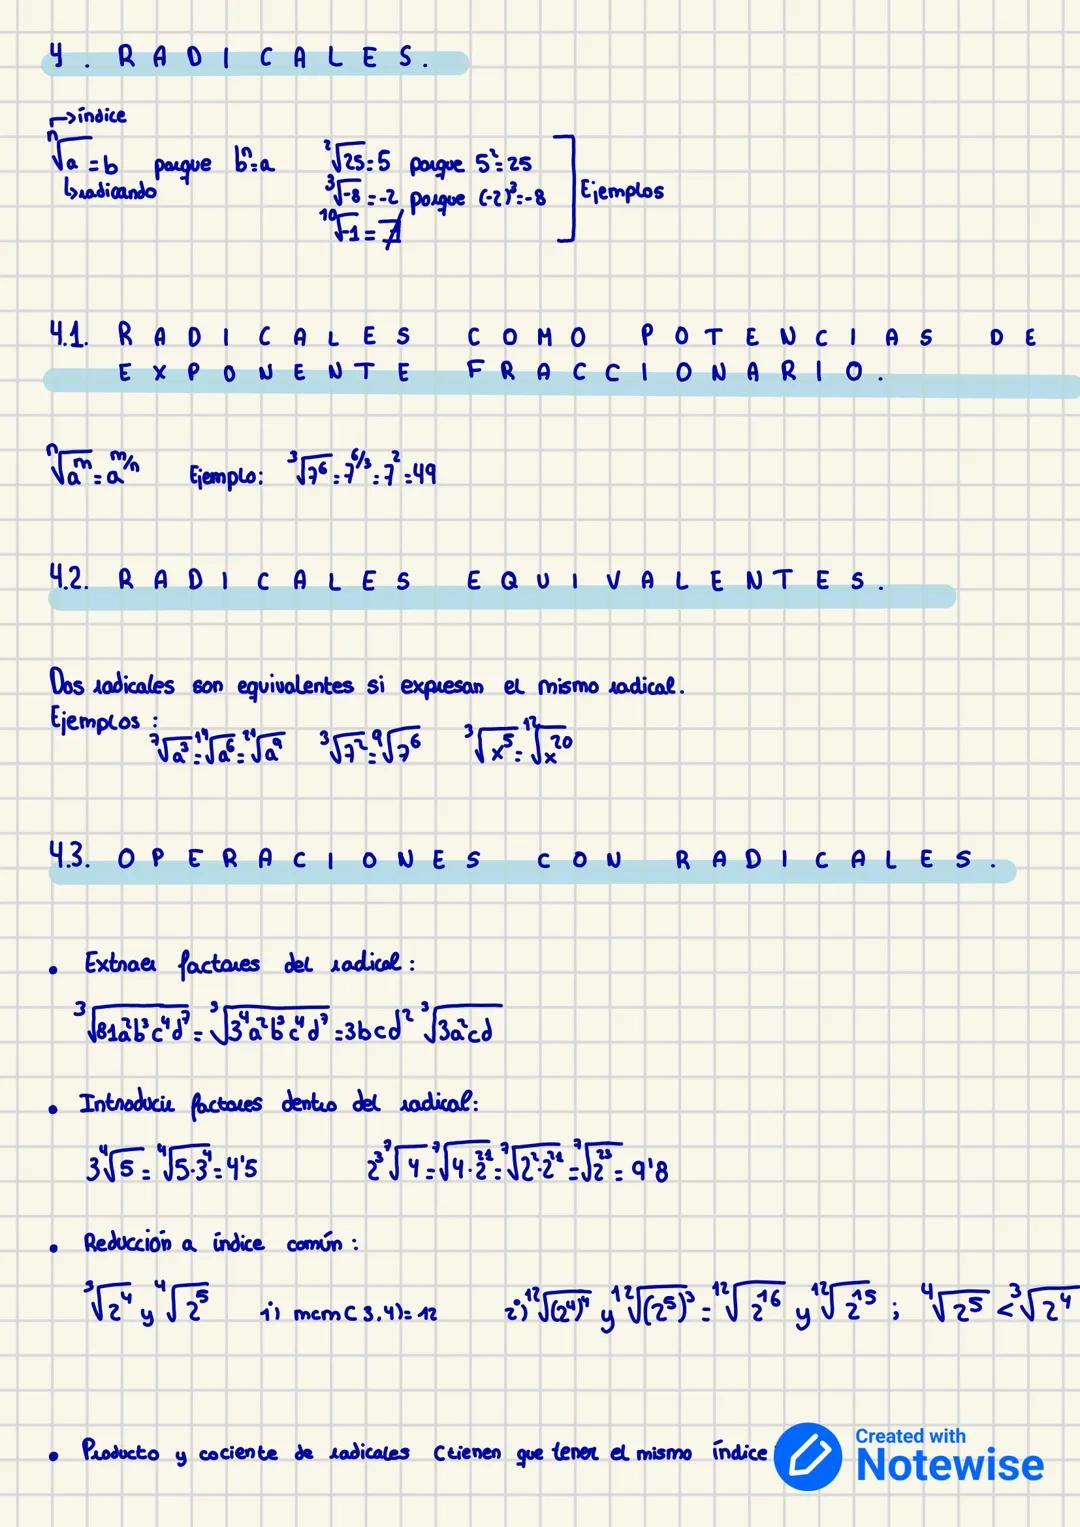 4. RADICALES.
índice
ⁿ√a = b porque bⁿ=a
radicando
²√25=5 porque 5²=25
³√-8=-2 porque (-2)³=-8
¹⁰√-1=∄
Ejemplos
4.1. RADICALES COMO POTENCIAS DE
EXPONENTE FRACCIONARIO.
ⁿ√aᵐ=a^m/n Ejemplo: ³√7⁶=7^6/3=7²=49
4.2. RADICALES EQUIVALENTES.
Dos radicales son equivalentes si expresan el mismo radical.
Ejemplos:
⁷√a³=¹⁴√a⁶=²¹√a⁹ ³√7²=⁹√7⁶ ³√x⁵=¹²√x²⁰
4.3. OPERACIONES CON RADICALES.
• Extraer factores del radical:
³√81a²b³c⁴d⁷=³√3⁴a²b³c⁴d⁷=3bcd² ³√3a²cd
• Introducir factores dentro del radical:
3⁴√5=⁴√5·3⁴=4'5 2³ ⁷√4=⁷√4·2²¹=⁷√2²·2²¹=⁷√2²³=9'8
• Reducción a índice común:
³√2⁴ y ⁴√2⁵ 1º) mcm(3,4)=12 2º) ¹²√(2⁴)⁴ y ¹²√(2⁵)³=¹²√2¹⁶ y ¹²√2¹⁵; ⁴√2⁵<³√2⁴
• Producto y cociente de radicales (tienen que tener el mismo índice
Created with
Notewise